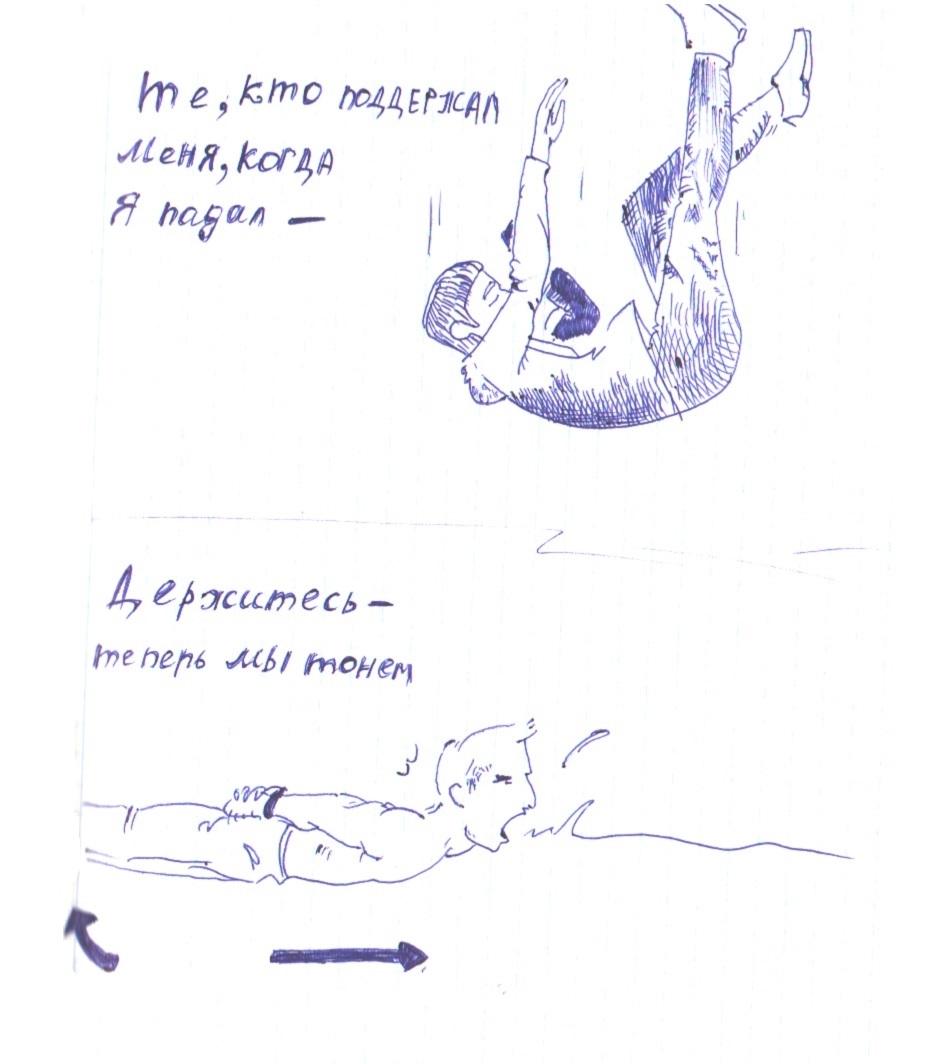 Те, кто поддержал
меня, когда
я падал —
Держитесь —
теперь мы тонем